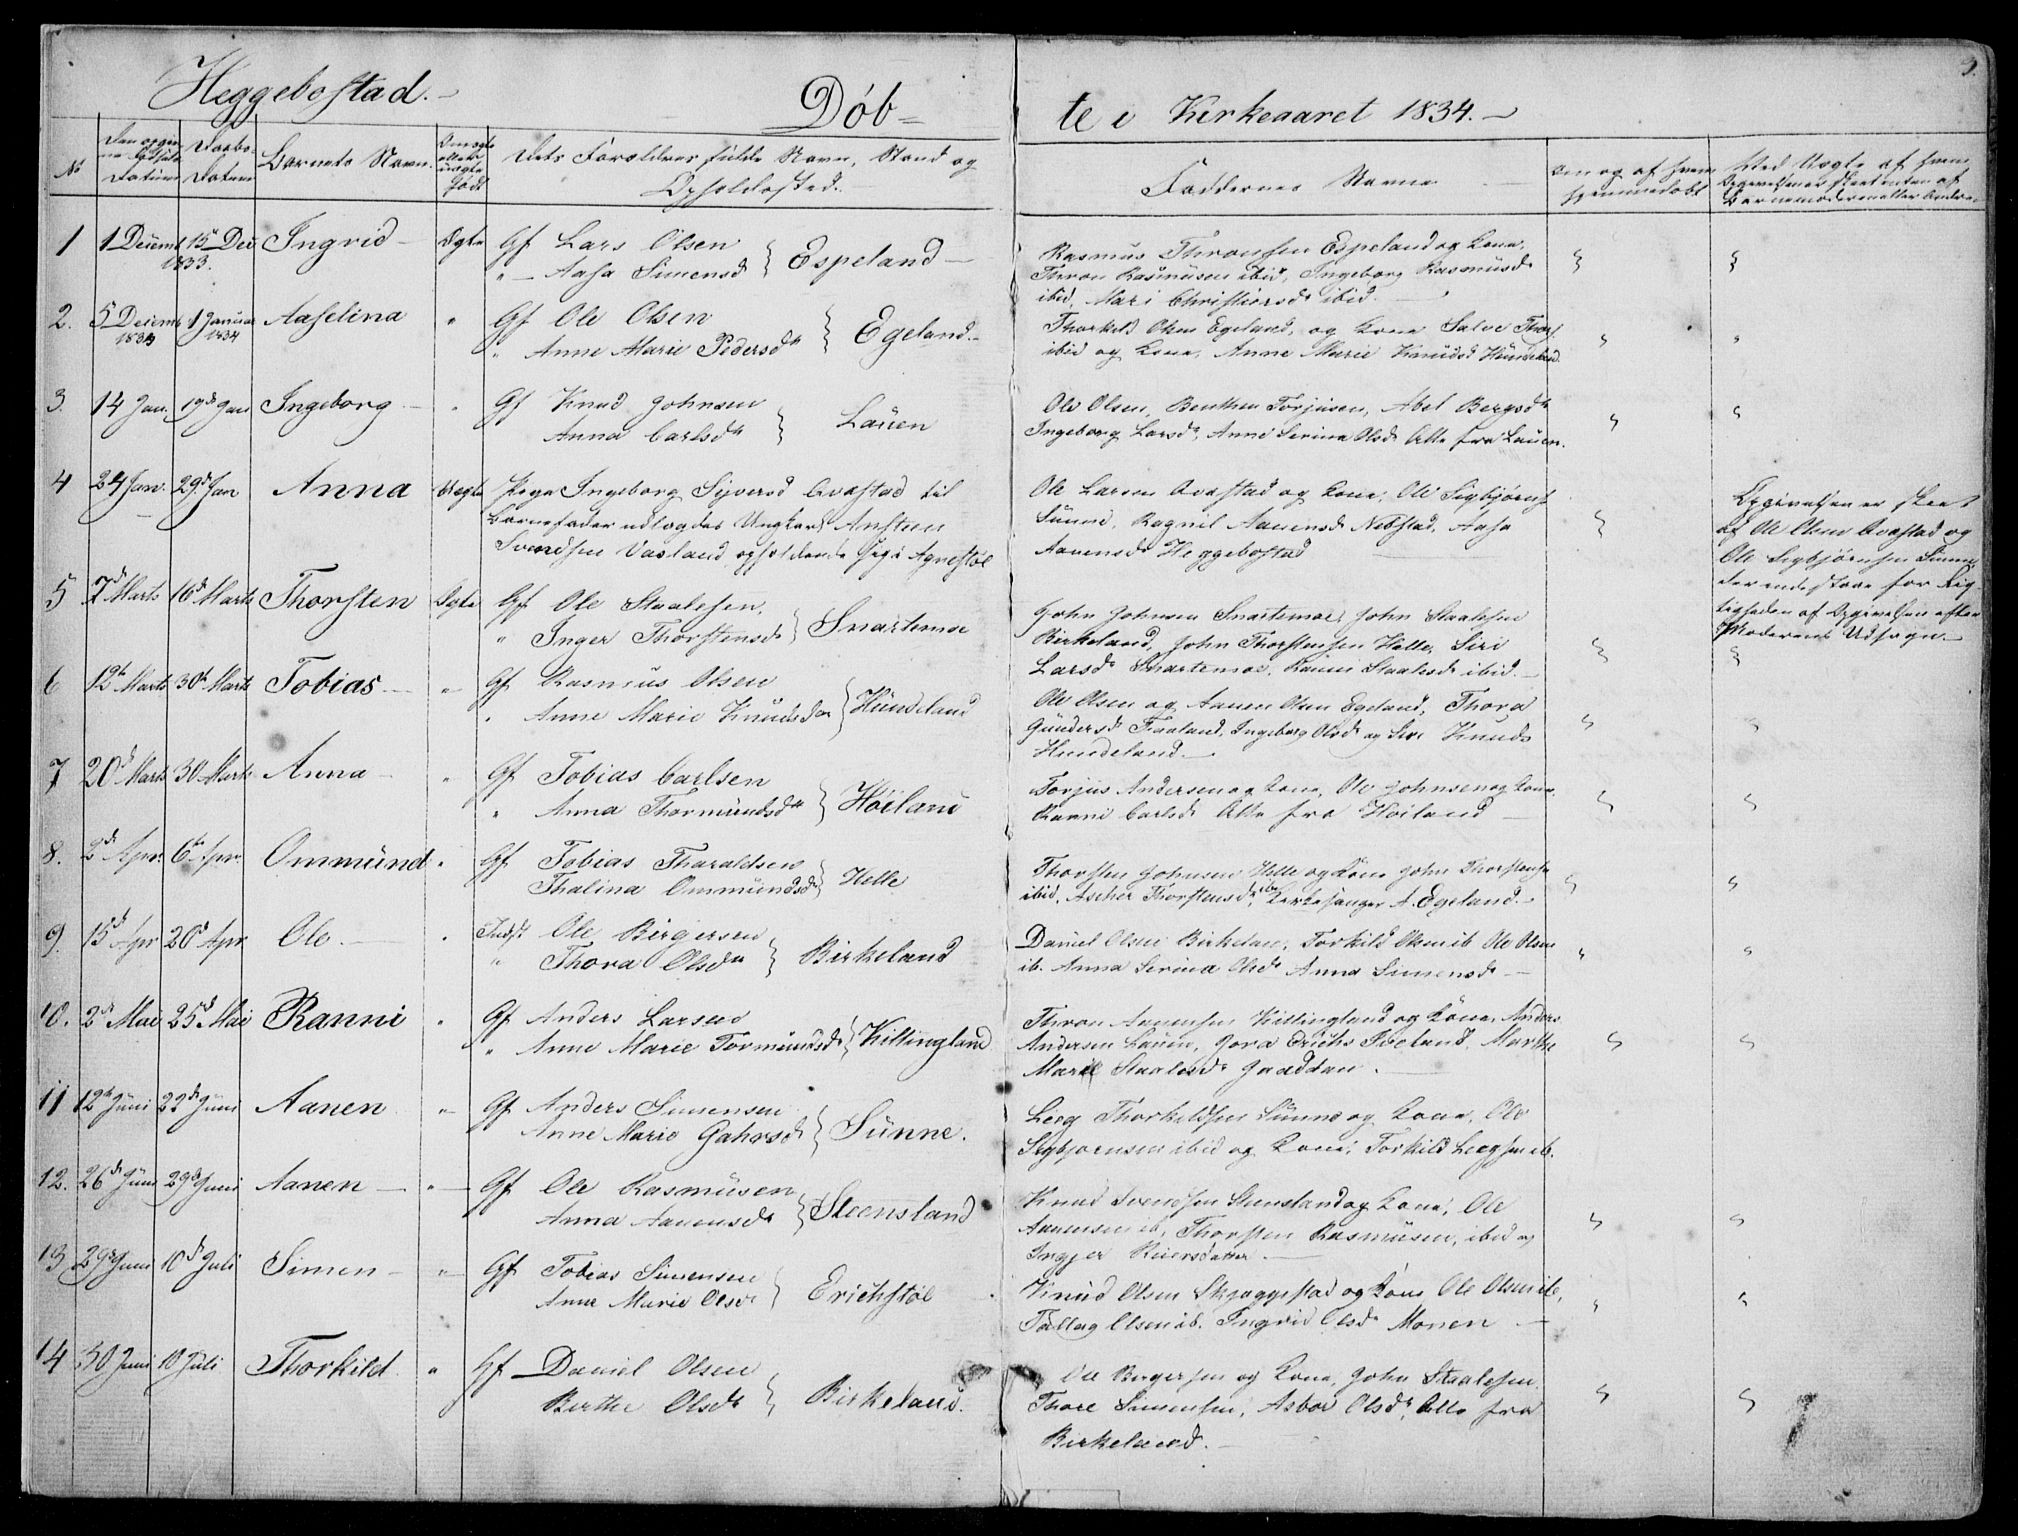 3.
Heggebostad.
Døbte i Kirkeaaret 1834.
No
Datum
Daabs Datum
Barnets Navn.
Om ægte eller uægte født
Dets Forældres fulde Navn, Stand og
Opholdssted.
Faddernes Navne
og af hvem hjemmedøbt
Ved Uægte af hvem
Opgivelsen er skeet enten af
Barnemoderen eller Andre
1 1 Decemb 15 Dec 1833. Ingrid Ægte Gf Lars Olsen
" Aasa Simensd } Espeland
Rasmus Thronsen Espeland og Kone,
Thron Rasmusen ibid, Ingeborg Rasmusd
ibid, Mari Christiensd ibid.
2. 5 Decemb 1 Januar 1834 Aaselina " Gf Ole Olsen
" Anne Marie Pedersdr } Egeland.
Thorkild Olsen Egeland, og Kone Salve
ibid og Kone, Anne Marie Knudsd
3. 14 Jan. 19d Jan Ingeborg " Gf Knud Johnsen
Anna Carlsdr } Lauen
Ole Olsen, Torjusen, Abel
Ingeborg Larsd, Anne Serina Olsd Alle fra Lauen.
4 24 Jan. 29d Jan Anna Uægte Pige Ingeborg Syversd Avestad til
Barnefader udlagdes Ungkarl
Svendsen
Ole Larsen Avestad og Kone, Ole
Sünne, Ragnil Aanensd Aasa
Aanensd Heggebostad
Opgivelsen er skeet
af Ole Olsen Avestad og
Ole Sigbjørnsen Sünne
der indestaae for Rig-
tigheden af Opgivelsen efter
Moderens Udsagn.
5 7d Marts 16d Marts Thorsten Ægte Gf Ole Staalesen,
" Inger Thorstensd } Snartemoe
John Johnsen Snartemoe, John Staalesen
Birkeland, John Thorstensen Helle, Siri
Larsd Snartemoe, Ranni Staalesd ibid.
6 12te Marts 30d Marts Tobias " Gf Rasmus Olsen
" Anne Marie Knudsdr } Hündeland
Ole Olsen og Aanen Olsen Egeland, Thora
Gündersd Ingeborg Olsd og Siri Knuds
Hundeland
7 20d Marts 30 Marts Anna " Gf Tobias Carlsen
" Anna Thormundsdr } Høiland
Torjus Andersen og Kone, Ole Johnsen og Kone
Ranni Carlsd Alle fra Høiland
8. 2d Apr. 6te Apr. Ommünd " Gf Tobias Tharaldsen
Thalina Ommündsd } Helle
Thorsten Johnsen Helle og Kone John Thorstensen
ibid, Thorstensd, Kirkesanger A. Egeland.
9. 15d Apr 20d Apr. Ole. " Indst Ole Birgersen
" Thora Olsdr } Birkeland
Daniel Olsen Birkeland, Torkild Olsen ib Ole Olsen
ib. Anna Serina Olsd Anna Simensd
10. 2d Mai 25d Mai Ranni " Gf Anders Larsen
" Anne Marie Tormundsd } Killingland
Thron Aanensen Killingland og Kone, Anders
Andersen Lauen, Marthe
Marie Staalesd
11 12te Juni 22d Juni Aanen " Gf Anders Simensen
Anne Marie } Sünne.
Leeg Thorkildsen Sünne og Kone, Ole
Sigbjørnsen ibid og Kone, Torkild Leegsen ib.
12. 26d Juni 29d Juni Aanen " Gf Ole Rasmüsen
Anna Aanensd } Steensland
Knud Svendsen Steensland og Kone, Ole
Aanensen ib, Thorsten Rasmüsen, ibid og
Reiersdatter
13 29d Juni 10d Juli Simen " Gf Tobias Simensen
Anne Marie Olsd } Erichstøl
Knud Olsen Skjeggestad og Kone Ole Olsen ib,
Tallag Olsen ib. Ingrid Olsd Monen
14 30 Juni 10 Juli Thorkild " Gf Daniel Olsen
Berthe Olsd } Birkeland.
Ole Birgersen og Kone, John Staalesen,
Thore Simensen, Asbor Olsd, Alle fra
Birkeland.